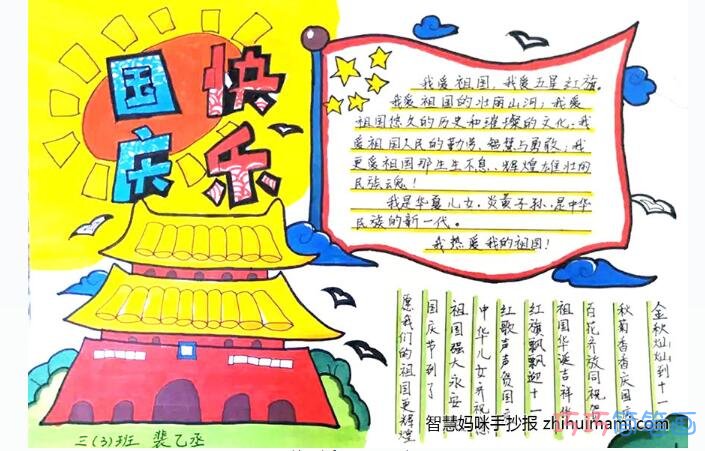 国庆
快乐
我爱祖国，我爱五星红旗。
我爱祖国的壮丽山河；我爱
祖国悠久的历史和璀璨的文化；我
爱祖国人民的勤劳、智慧与勇敢；我
更爱祖国那生生不息、辉煌雄壮的
民族魂！
我是华夏儿女，炎黄子孙，是中华
民族的新一代。
我热爱我的祖国！
金秋灿灿到十一
秋菊香香庆国
百花齐放同祝
祖国华诞吉祥
红旗飘飘迎十一
红歌声声贺国
中华儿女齐祝
祖国强大永安
国庆节到了
愿我们的祖国更辉煌
三(3)班 裴乙丞
智慧妈咪手抄报 zhihuimami.com
简笔画